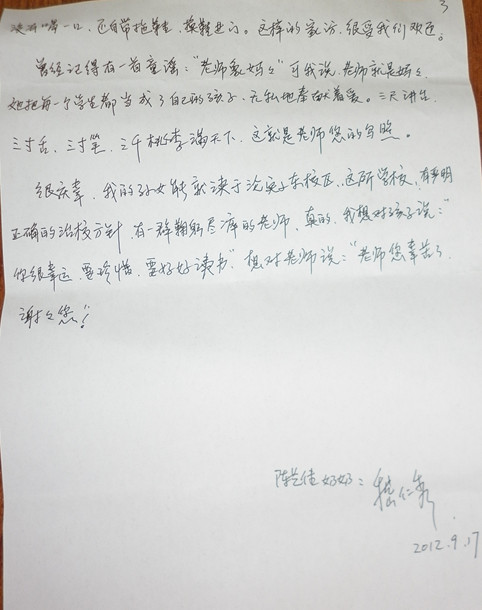 3
没听喝一口，还自带拖鞋，换鞋进门。这样的家访，很受我们欢迎。
曾经记得有一首童谣：“老师象妈妈”可我说，老师就是妈妈，
她把每一个学生都当成了自己的孩子，无私地奉献着爱。三尺讲台，
三寸舌，三寸笔，三千桃李满天下，这就是老师您的写照。
很庆幸，我的孙女能就读于沧实小东校区，这所学校，有英明
正确的治校方针，有一群鞠躬尽瘁的老师，真的，我想对孩子说：“
你很幸运，要珍惜，要好好读书”。想对老师说：“老师您辛苦了，
谢谢您！”
陈艺佳奶奶：
2012.9.17